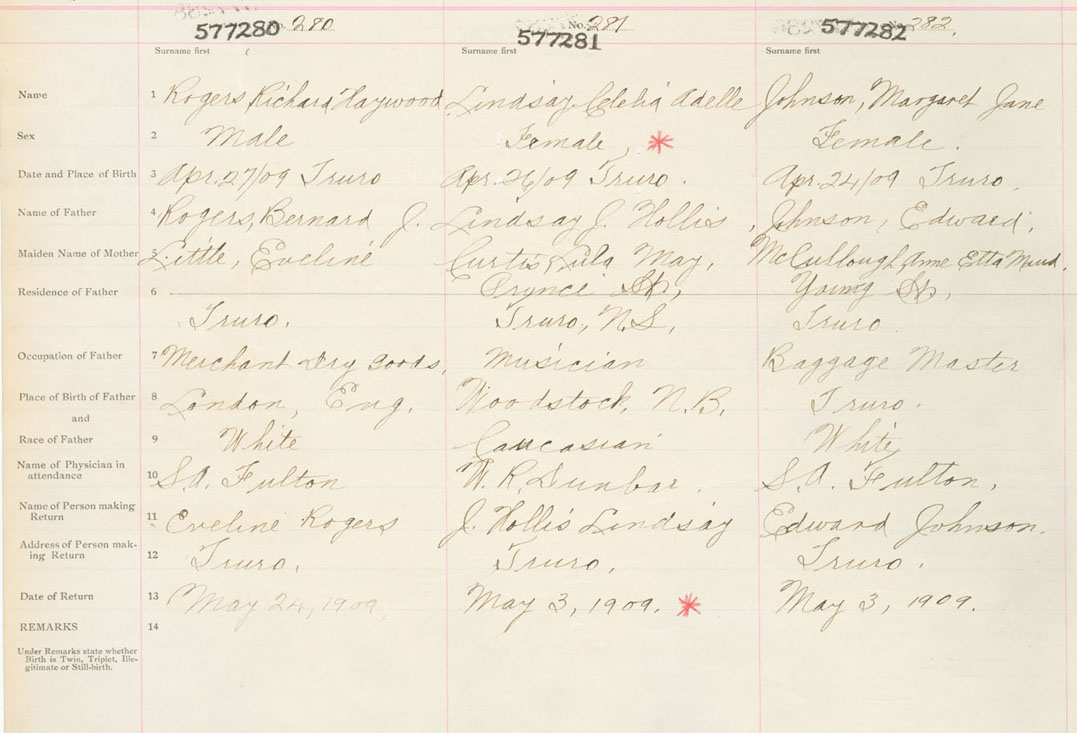 577280 No. 280 577281 No. 281 577282 No. 282.
Surname first Surname first Surname first
Name 1 Rogers Richard Haywood Lindsay Celelia Adelle Johnson, Margaret Jane
Sex 2 Male Female, * Female.
Date and Place of Birth 3 Apr. 27/09 Truro Apr. 26/09 Truro. Apr. 24/09 Truro,
Name of Father 4 Rogers, Bernard J. Lindsay J. Hollis, Johnson, Edward,
Maiden Name of Mother 5 Little, Eveline Curtis, Lula May, McCullough, Anne Etta Maud.
Residence of Father 6 Prynce St, Young St,
Truro. Truro, N.S, Truro
Occupation of Father 7 Merchant Dry goods, Musician Baggage Master
Place of Birth of Father 8 London, Eng. Woodstock, N.B, Truro.
and
Race of Father 9 White Caucasian White
Name of Physician in
attendance 10 S.A. Fulton W.R. Dunbar. S.A. Fulton,
Name of Person making
Return 11 Eveline Rogers J. Hollis Lindsay Edward Johnson.
Address of Person mak-
ing Return 12 Truro, Truro, Truro.
Date of Return 13 May 24, 1909 May 3, 1909. * May 3, 1909.
REMARKS 14
Under Remarks state whether
Birth is Twin, Triplet, Ille-
gitimate or Still-birth.